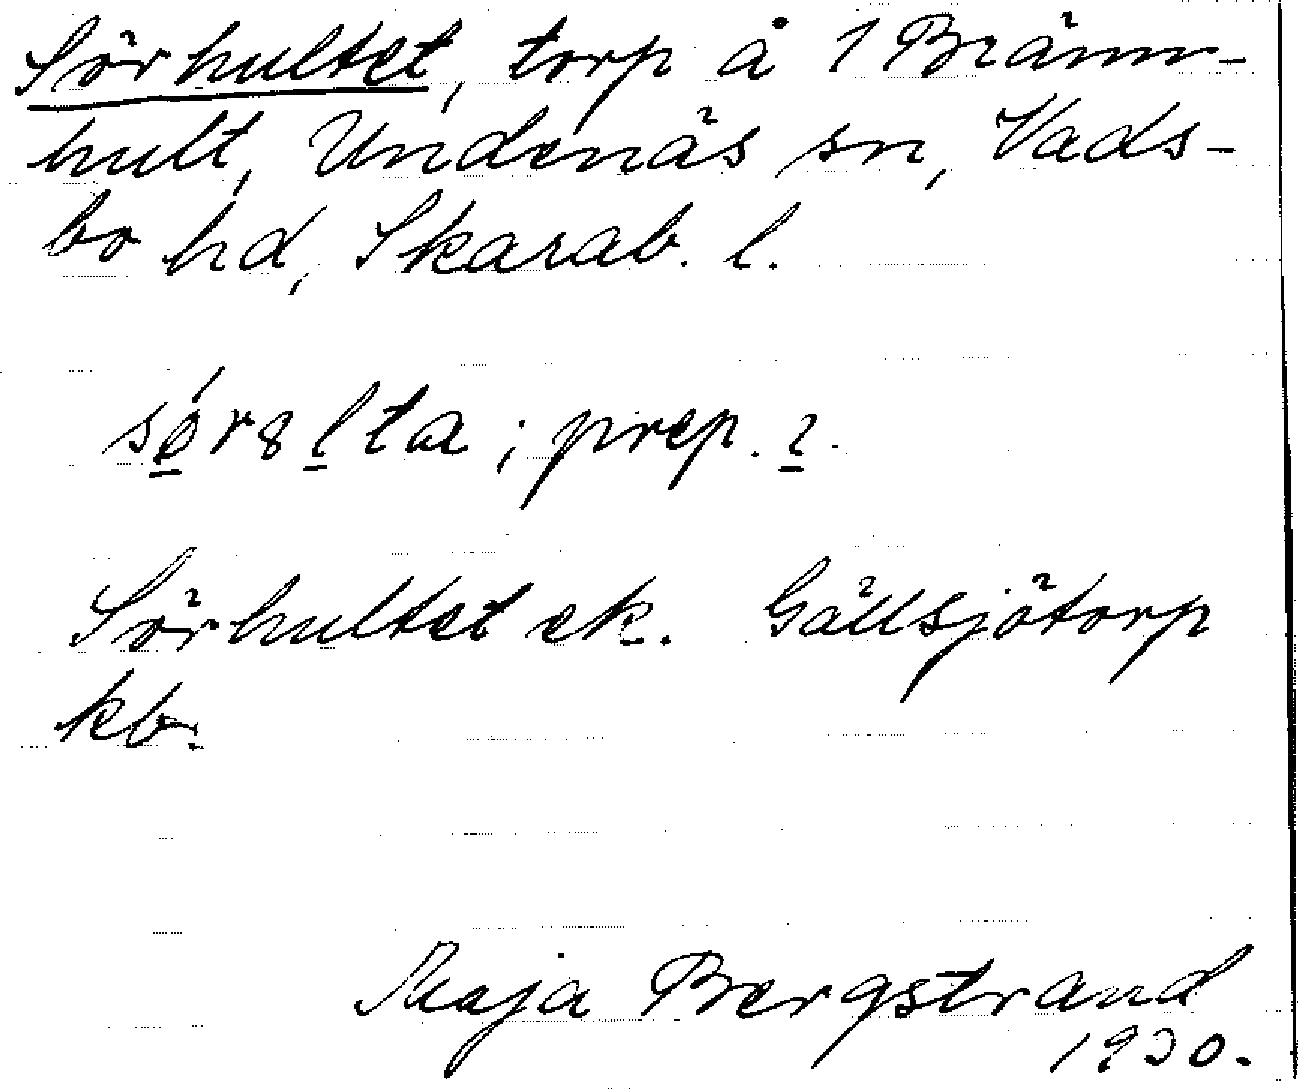 Sörhultet, torp å 1 Bränn-
hult, Undenäs sn, Vads-
bo hd, Skarab. l.
sǿ̱r8ḻta; prep. ı̱.
Sörhultet ek. Gällsjötorp
kb.
Maja Bergstrand
1930.